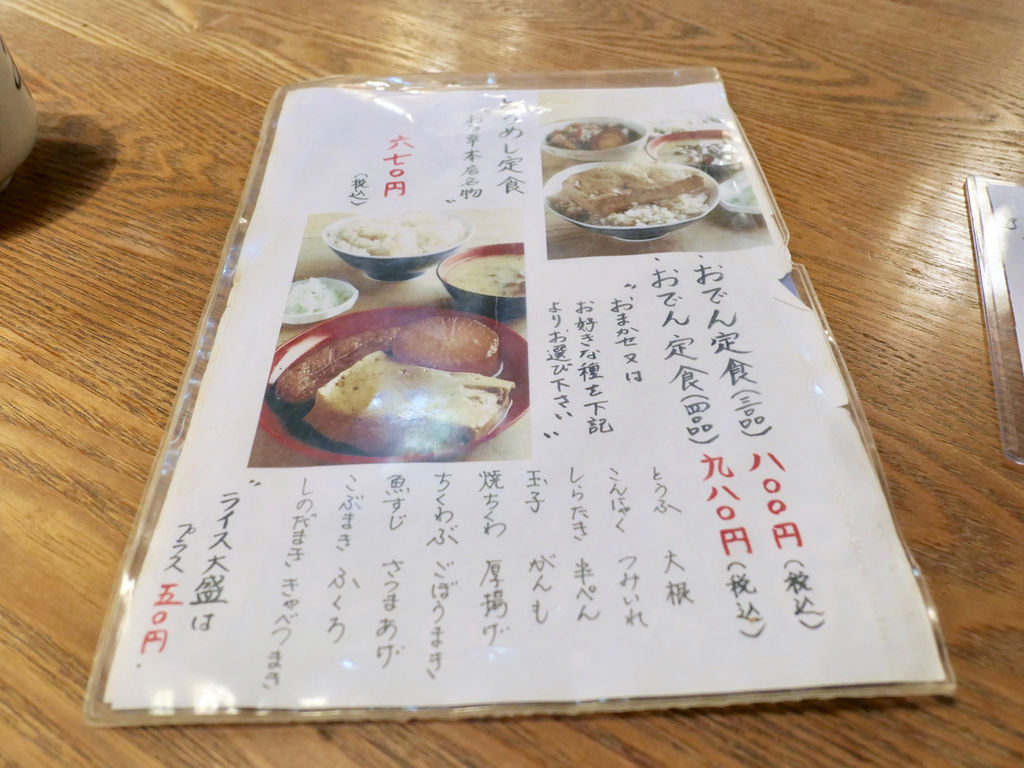 とうめし定食
お多幸本店名物〟
六七〇円
(税込)
・おでん定食(三品) 八〇〇円(税込)
・おでん定食(四品) 九八〇円(税込)
〝おまかせ又は
お好きな種を下記
よりお選び下さい〟
とうふ 大根
こんにゃく つみいれ
しらたき 半ぺん
玉子 がんも
焼ちくわ 厚揚げ
ちくわぶ ごぼうまき
魚すじ さつまあげ
こぶまき ふくろ
しのだまき きゃべつまき
〝ライス大盛は
プラス 五〇円.